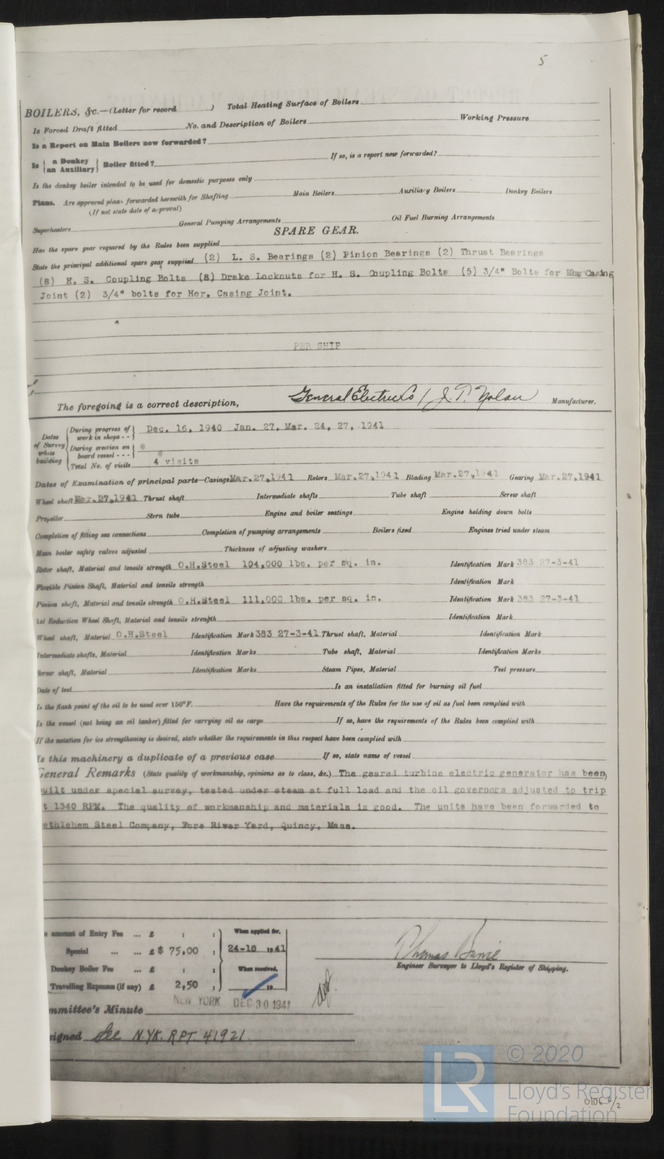 5
BOILERS, &c.—(Letter for record ) Total Heating Surface of Boilers
Is Forced Draft fitted No. and Description of Boilers Working Pressure
Is a Report on Main Boilers now forwarded?
Is { a Donkey / an Auxiliary } Boiler fitted? If so, is a report now forwarded?
Is the donkey boiler intended to be used for domestic purposes only
Plans. Are approved plans forwarded herewith for Shafting Main Boilers Auxiliary Boilers Donkey Boilers
(If not state date of approval)
Superheaters General Pumping Arrangements Oil Fuel Burning Arrangements
SPARE GEAR.
Has the spare gear required by the Rules been supplied
State the principal additional spare gear supplied (2) L. S. Bearings (2) Pinion Bearings (2) Thrust Bearings
(8) H. S. Coupling Bolts (8) Drake Locknuts for H. S. Coupling Bolts (5) 3/4" Bolts for Casing
Joint (2) 3/4" bolts for Hor. Casing Joint.
PER SHIP
The foregoing is a correct description, General Electric Co / J. T. Nolan Manufacturer.
Dates of Survey while building
During progress of work in shops - - Dec. 16, 1940 Jan. 27, Mar. 24, 27, 1941
During erection on board vessel - - -
Total No. of visits 4 visits
Dates of Examination of principal parts—Casings Mar.27,1941 Rotors Mar.27,1941 Blading Mar.27,1941 Gearing Mar.27,1941
Wheel shaft Mar.27,1941 Thrust shaft Intermediate shafts Tube shaft Screw shaft
Propeller Stern tube Engine and boiler seatings Engine holding down bolts
Completion of fitting sea connections Completion of pumping arrangements Boilers fixed Engines tried under steam
Main boiler safety valves adjusted Thickness of adjusting washers
Rotor shaft, Material and tensile strength O.H.Steel 104,000 lbs. per sq. in. Identification Mark 383 27-3-41
Flexible Pinion Shaft, Material and tensile strength Identification Mark
Pinion shaft, Material and tensile strength O.H.Steel 111,000 lbs. per sq. in. Identification Mark 383 27-3-41
1st Reduction Wheel Shaft, Material and tensile strength Identification Mark
Wheel shaft, Material O.H.Steel Identification Mark 383 27-3-41 Thrust shaft, Material Identification Mark
Intermediate shafts, Material Identification Marks Tube shaft, Material Identification Marks
Screw shaft, Material Identification Marks Steam Pipes, Material Test pressure
Date of test Is an installation fitted for burning oil fuel
Is the flash point of the oil to be used over 150°F. Have the requirements of the Rules for the use of oil as fuel been complied with
Is the vessel (not being an oil tanker) fitted for carrying oil as cargo If so, have the requirements of the Rules been complied with
If the notation for ice strengthening is desired, state whether the requirements in this respect have been complied with
Is this machinery a duplicate of a previous case If so, state name of vessel
General Remarks (State quality of workmanship, opinions as to class, &c.) The geared turbine electric generator has been
uilt under special survey, tested under steam at full load and the oil governors adjusted to trip
t 1340 RPM. The quality of workmanship and materials is good. The units have been forwarded to
ethlehem Steel Company, Fore River Yard, Quincy, Mass.
amount of Entry Fee ... £ : :
Special ... ... £ $ 75.00 :
Donkey Boiler Fee ... £ : :
Travelling Expenses (if any) £ 2.50 :
When applied for,
24-10 1941
When received,
19
Engineer Surveyor to Lloyd's Register of Shipping.
mmittee's Minute NEW YORK DEC 30 1941
signed See N.YK. RPT 41921
LR © 2020
Lloyd's Register
Foundation